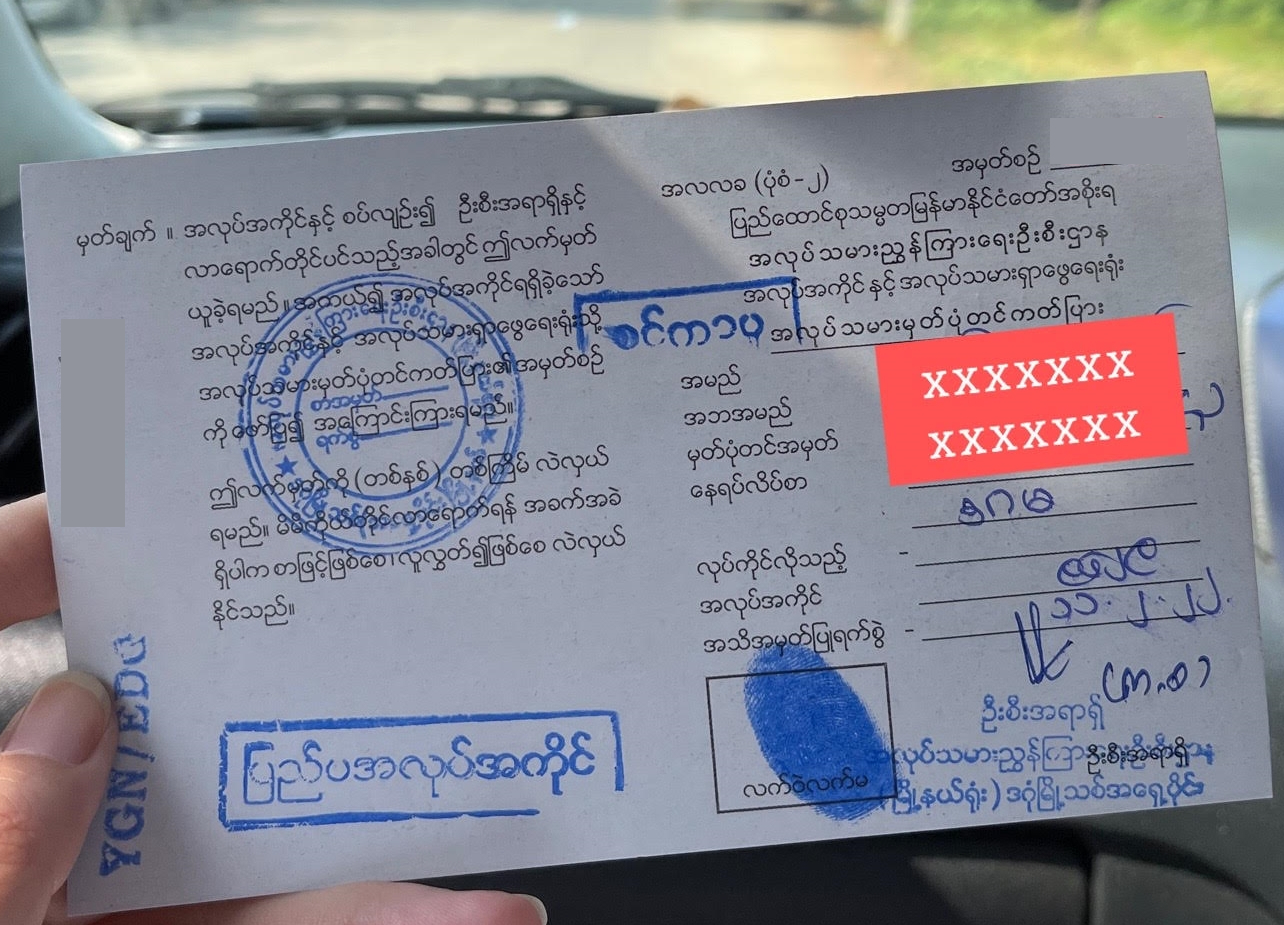 မှတ်ချက် ။ အလုပ်အကိုင်နှင့် စပ်လျဉ်း၍ ဦးစီးအရာရှိနှင့်
လာရောက်တိုင်ပင်သည့်အခါတွင် ဤလက်မှတ်
ယူခဲ့ရမည်။ အကယ်၍ အလုပ်အကိုင်ရရှိခဲ့သော်
အလုပ်အကိုင်နှင့် အလုပ်သမားရှာဖွေရေးရုံးသို့
အလုပ်သမားမှတ်ပုံတင်ကတ်ပြား၏အမှတ်စဉ်
ကို ဖော်ပြ၍ အကြောင်းကြားရမည်။
ဤလက်မှတ်ကို (တစ်နှစ်) တစ်ကြိမ် လဲလှယ်
ရမည်။ မိမိကိုယ်တိုင်လာရောက်ရန် အခက်အခဲ
ရှိပါက စာဖြင့်ဖြစ်စေ၊ လူလွှတ်၍ဖြစ်စေ လဲလှယ်
နိုင်သည်။
YGN/EDC
ပြည်ပအလုပ်အကိုင်
အလလခ (ပုံစံ-၂)
အမှတ်စဉ်
ပြည်ထောင်စုသမ္မတမြန်မာနိုင်ငံတော်အစိုးရ
အလုပ်သမားညွှန်ကြားရေးဦးစီးဌာန
အလုပ်အကိုင်နှင့်အလုပ်သမားရှာဖွေရေးရုံး
အလုပ်သမားမှတ်ပုံတင်ကတ်ပြား
စင်ကာပူ
XXXXXXX
XXXXXXX
အမည်
အဘအမည်
မှတ်ပုံတင်အမှတ်
နေရပ်လိပ်စာ
ဒဂမ
လုပ်ကိုင်လိုသည့် -
အလုပ်အကိုင်
အသိအမှတ်ပြုရက်စွဲ - ၁၁.၂.၂၂.
လက်ဝဲလက်မ
ဦးစီးအရာရှိ
အလုပ်သမားညွှန်ကြား
ဦးစီးအရာရှိ
(မြို့နယ်ရုံး) ဒဂုံမြို့သစ်အရှေ့ပိုင်း